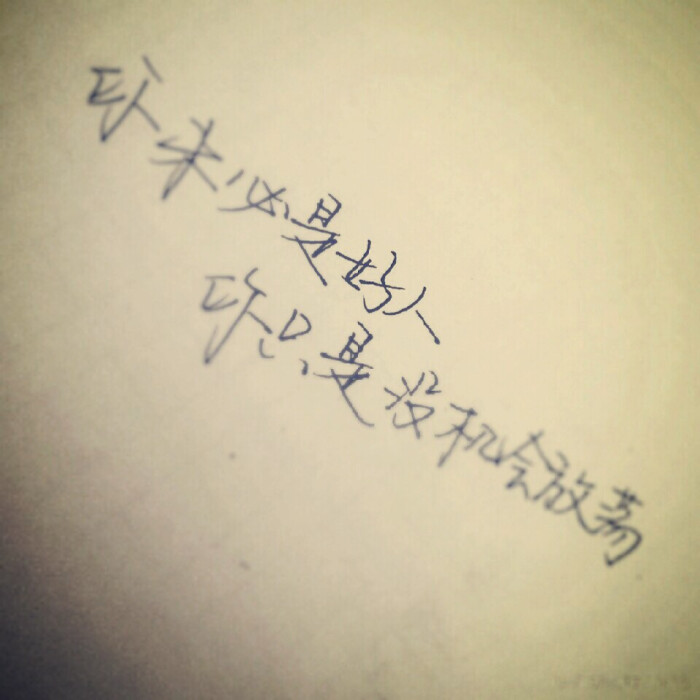 未必是好人
只是没机会放荡